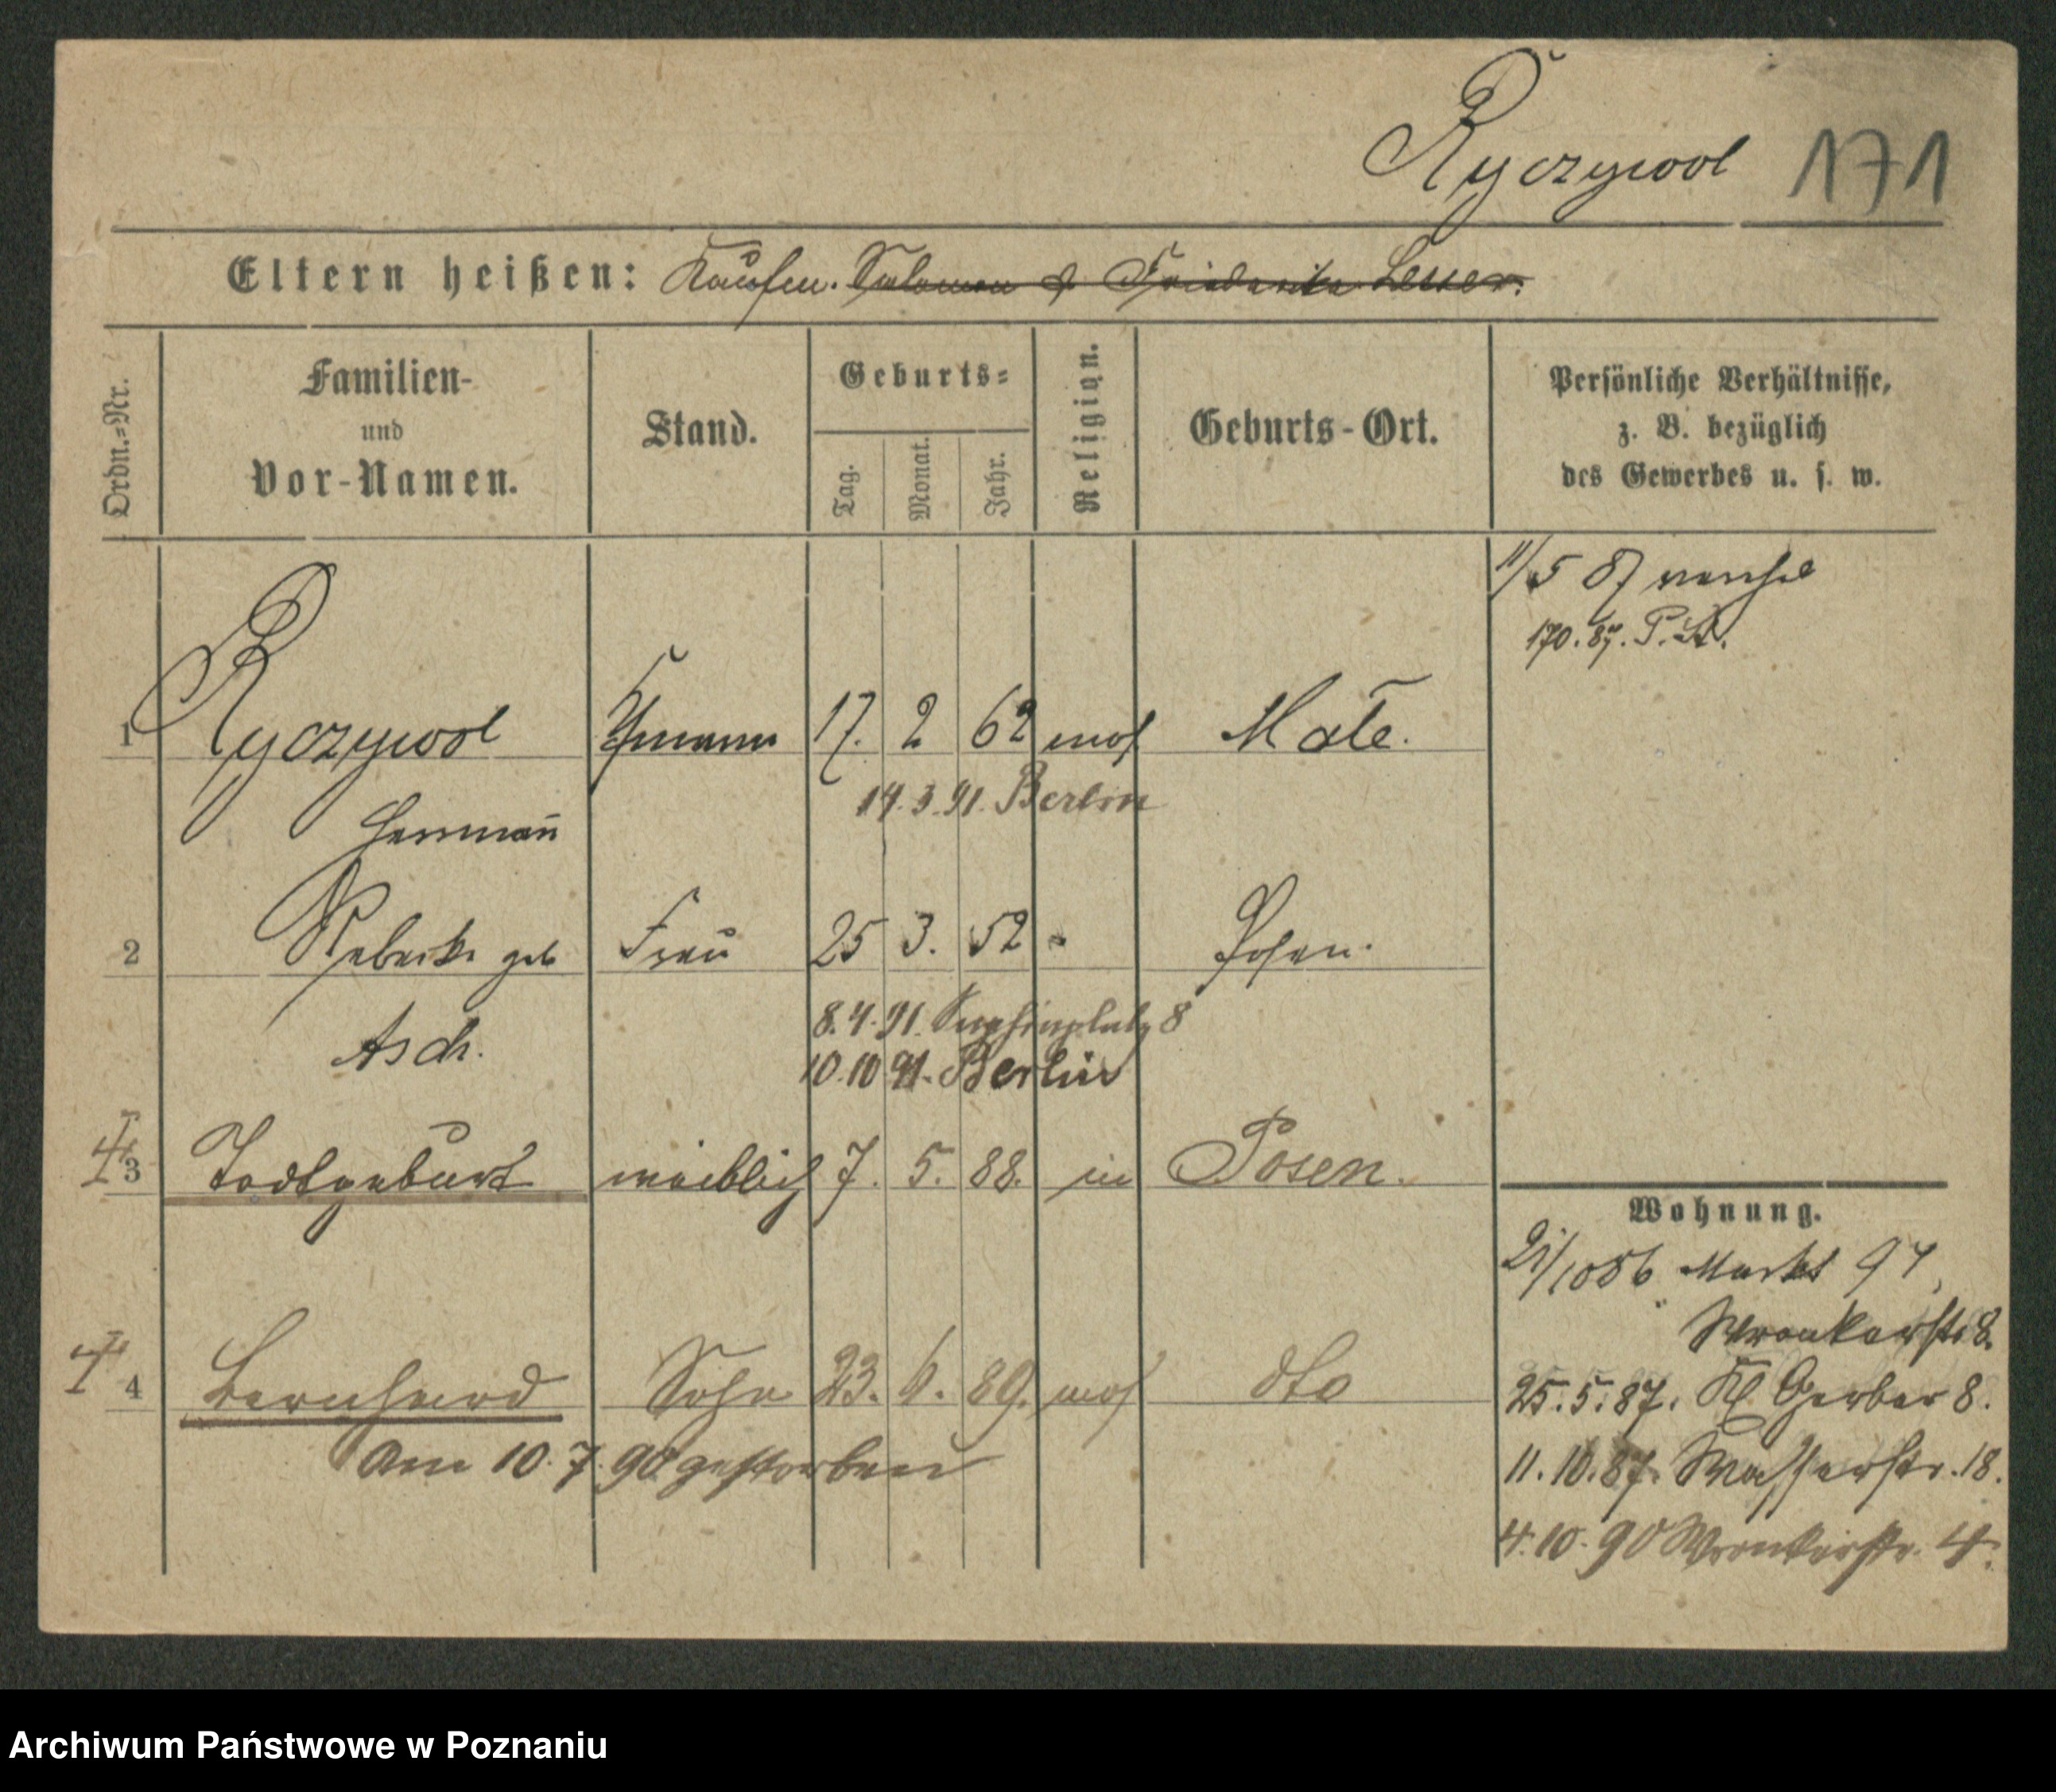 Ryczywol 171
Eltern heißen: Kaufm. Salomon & Friederike Lesser.
Ordn.=Nr.
Familien-
und
Vor-Namen.
Stand.
Geburts=
Tag.
Monat.
Jahr.
Religion.
Geburts-Ort.
Persönliche Verhältnisse,
z. B. bezüglich
des Gewerbes u. s. w.
11/5 87
170. 87. P. A.
1 Ryczywol 17. 2 62 mos
14. 3. 91. Berlin
Herrmañ
2 Rebecka geb Frau 25 3. 52 " Posen.
8. 4. 91. 8
Asch.
10. 10. 91. Berlin
3 Todtgeburt weiblich 7. 5. 88. in Posen.
Wohnung.
21/10 86 Markt 94,
Wronkerstr 8.
4 Bernhard Sohn 23. 6. 89. mos dto
25. 5. 87. Kl. Gerber 8.
am 10. 7. 90 gestorben
11. 10. 87. Wasserstr. 18.
4. 10. 90 Wronkerstr. 4.
Archiwum Państwowe w Poznaniu